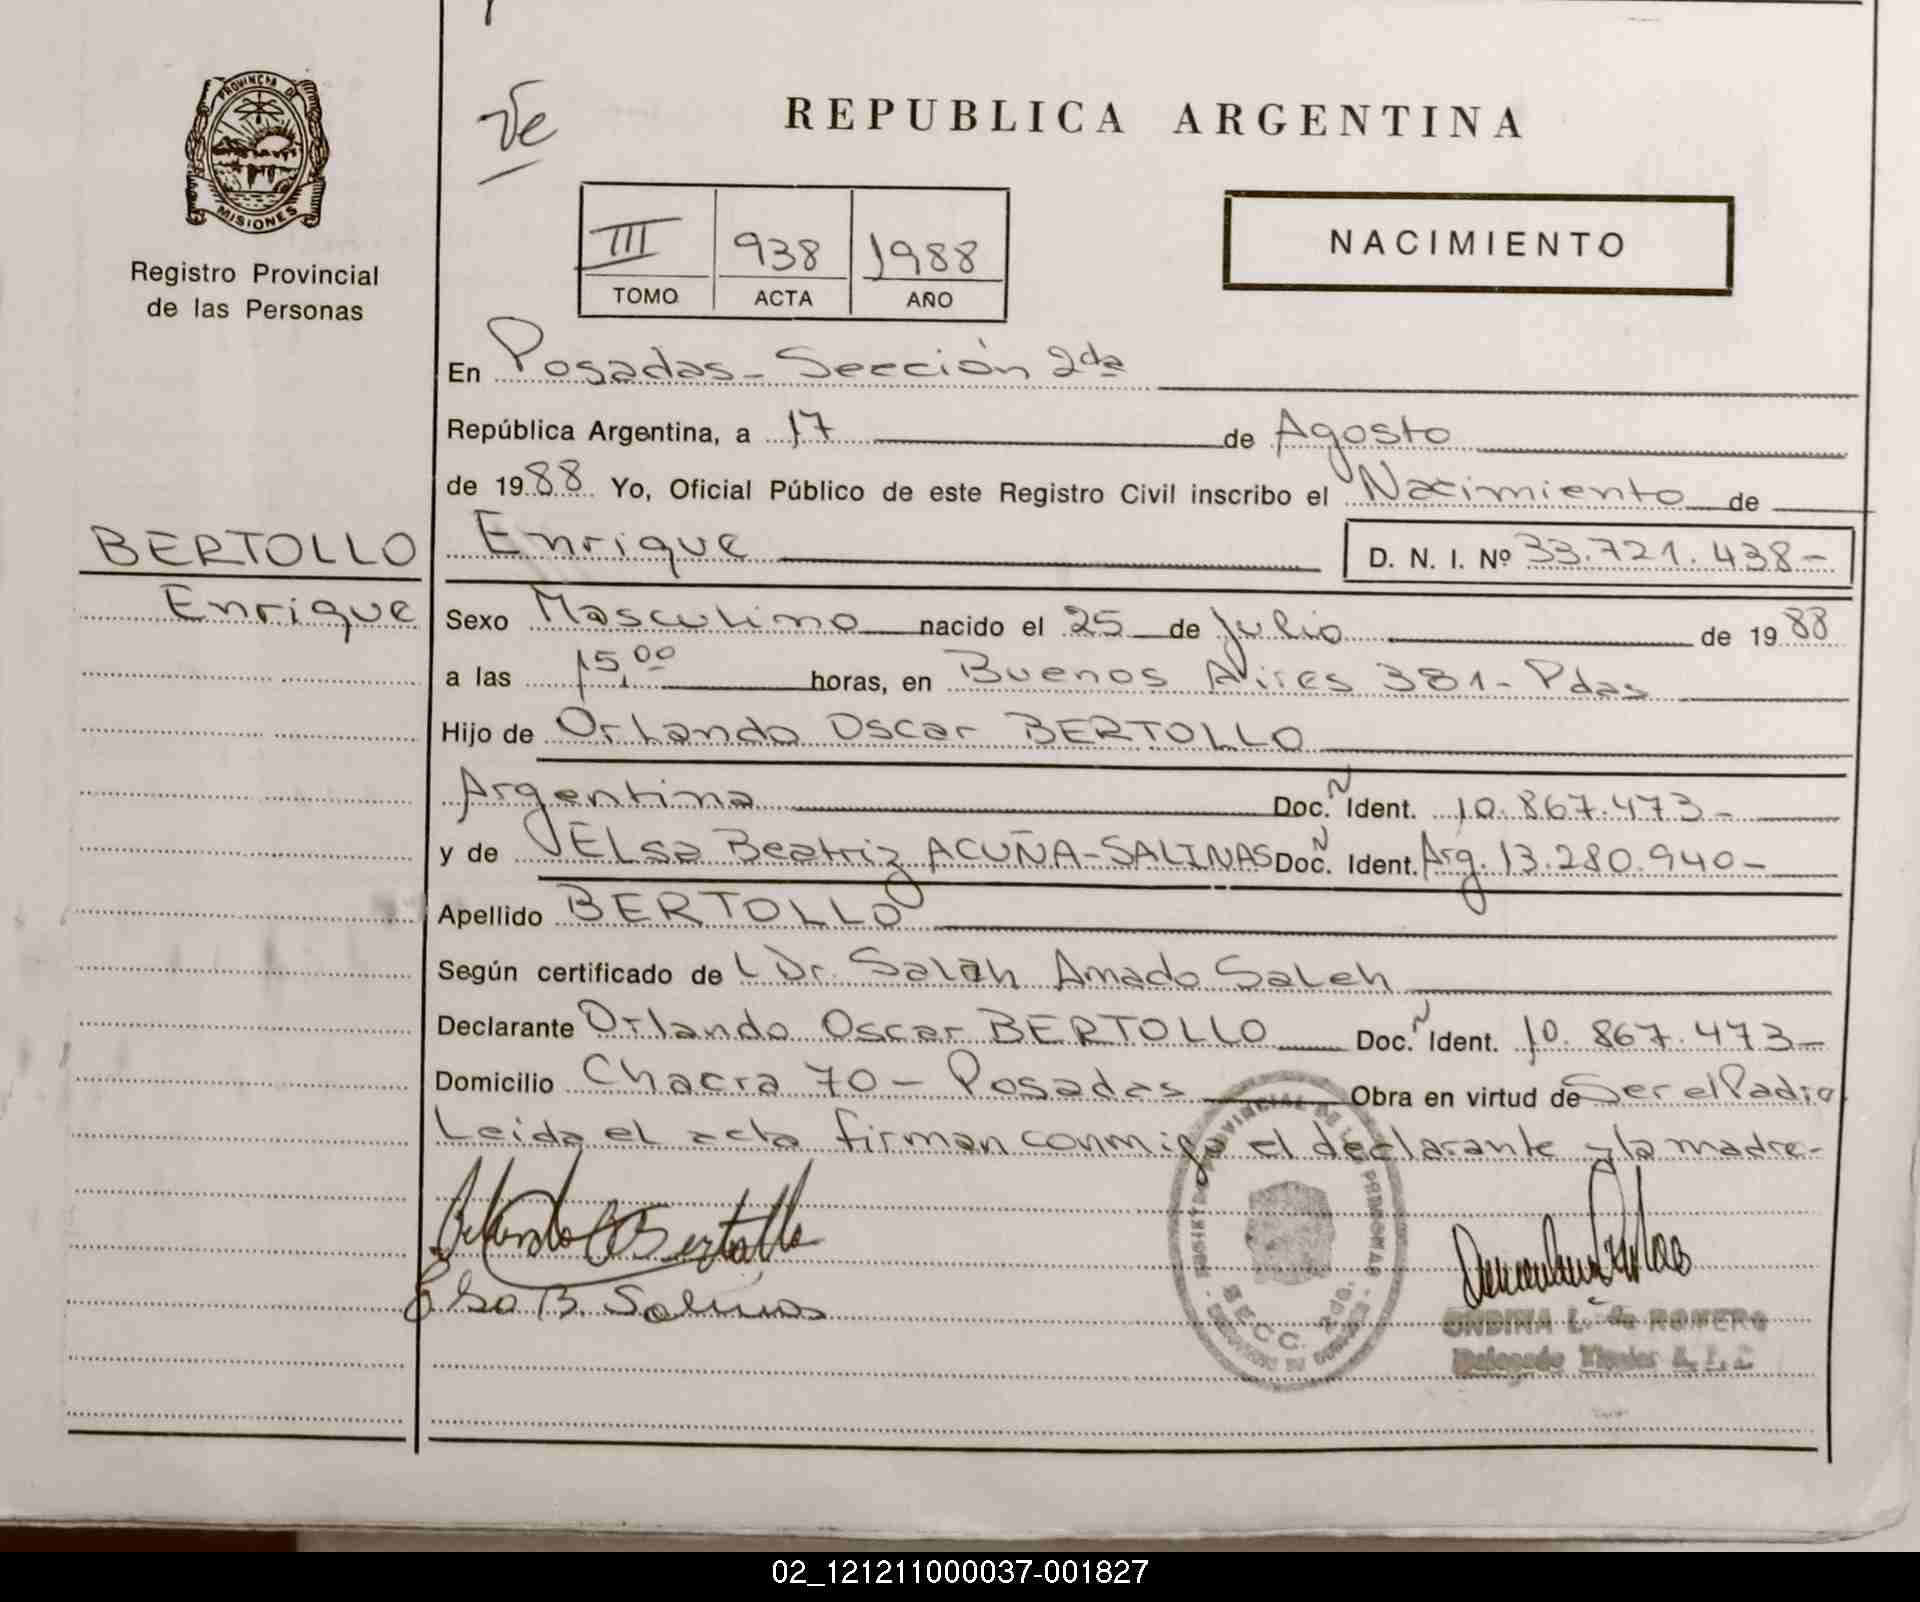 PROVINCIA D
MISIONES
Registro Provincial
de las Personas
BERTOLLO
Enrique
Ve
REPUBLICA ARGENTINA
III 938 1988
TOMO ACTA AÑO
NACIMIENTO
En Posadas - Sección 2da
República Argentina, a 17 de Agosto
de 1988 Yo, Oficial Público de este Registro Civil inscribo el Nacimiento de
Enrique D. N. I. Nº 33.721.438-
Sexo Masculino nacido el 25 de Julio de 1988
a las 15,00 horas, en Buenos Aires 381 - Pdas
Hijo de Orlando Oscar BERTOLLO
Argentina Doc. Ident. 10.867.473-
y de Elsa Beatriz ACUÑA-SALINAS Doc. Ident. Arg. 13.280.940-
Apellido BERTOLLO
Según certificado de Dr. Salah Amado Saleh
Declarante Orlando Oscar BERTOLLO Doc. Ident. 10.867.473-
Domicilio Chacra 70 - Posadas Obra en virtud de Ser el Padre
Leida el acta firman conmigo el declarante y la madre-
Orlando O Bertollo
Elsa B. Salinas
SECC. 2da.
ONDINA L. de ROMERO
Delegado Titular
02_121211000037-001827